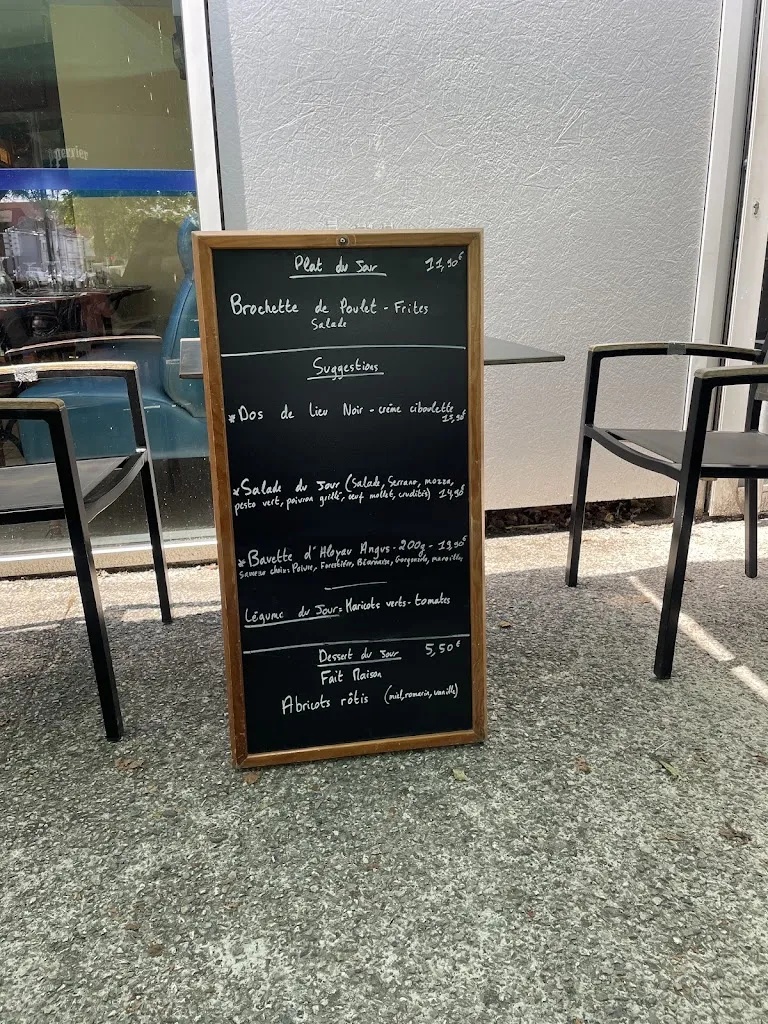 Perrier
Plat du Jour 11,90€
Brochette de Poulet - Frites
Salade
Suggestions
*Dos de Lieu Noir - crème ciboulette
*Salade du Jour (Salade, Serrano, mozza,
pesto vert, poivron grillé, œuf mollet, crudités) 14,90€
*Bavette d'Aloyau Angus - 200g -
Sauces choix: Poivre, Forestière, Béarnaise, Gorgonzola, maroilles
Légume du Jour = Haricots verts - tomates
Dessert du Jour 5,50€
Fait Maison
Abricots rôtis (miel, romarin, vanille)